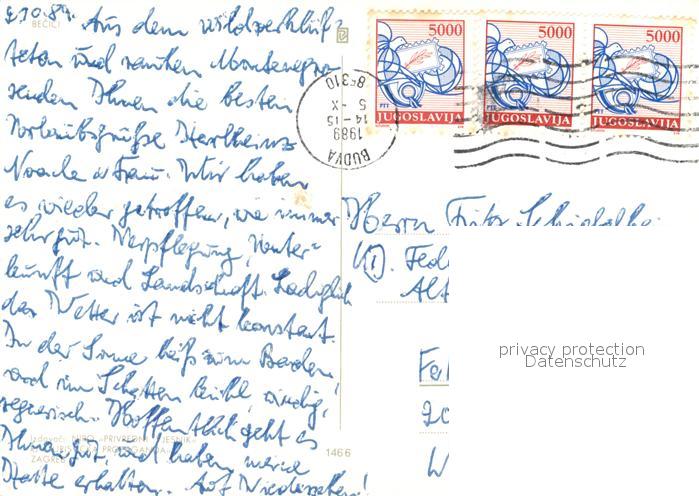 2.10.89. Aus dem wildzerklüf=
BEČIĆI
teten und rauhen Montenegro
senden Ihnen die besten
Urlaubsgrüße Karlheinz
Noack u. Frau. Wir haben
es wieder getroffen, wie immer
sehr gut. Verpflegung, Unter=
kunft und Landschaft. Lediglich
das Wetter ist nicht konstant.
In der Sonne heiß zum Baden,
und im Schatten kühl, windig,
regnerisch. Hoffentlich geht es
Ihnen gut, und haben meine
Karte erhalten. Auf Wiedersehen!
Izdavač: NIRO «PRIVREDNI VJESNIK»
PROPAGANDA
ZAGREB
1466
5000 5000 5000
PTT PTT PTT
JUGOSLAVIJA JUGOSLAVIJA JUGOSLAVIJA
85310
5 -X
14-15
1989
BUDVA
Herrn Fritz
(1).
Alt
W
privacy protection
Datenschutz